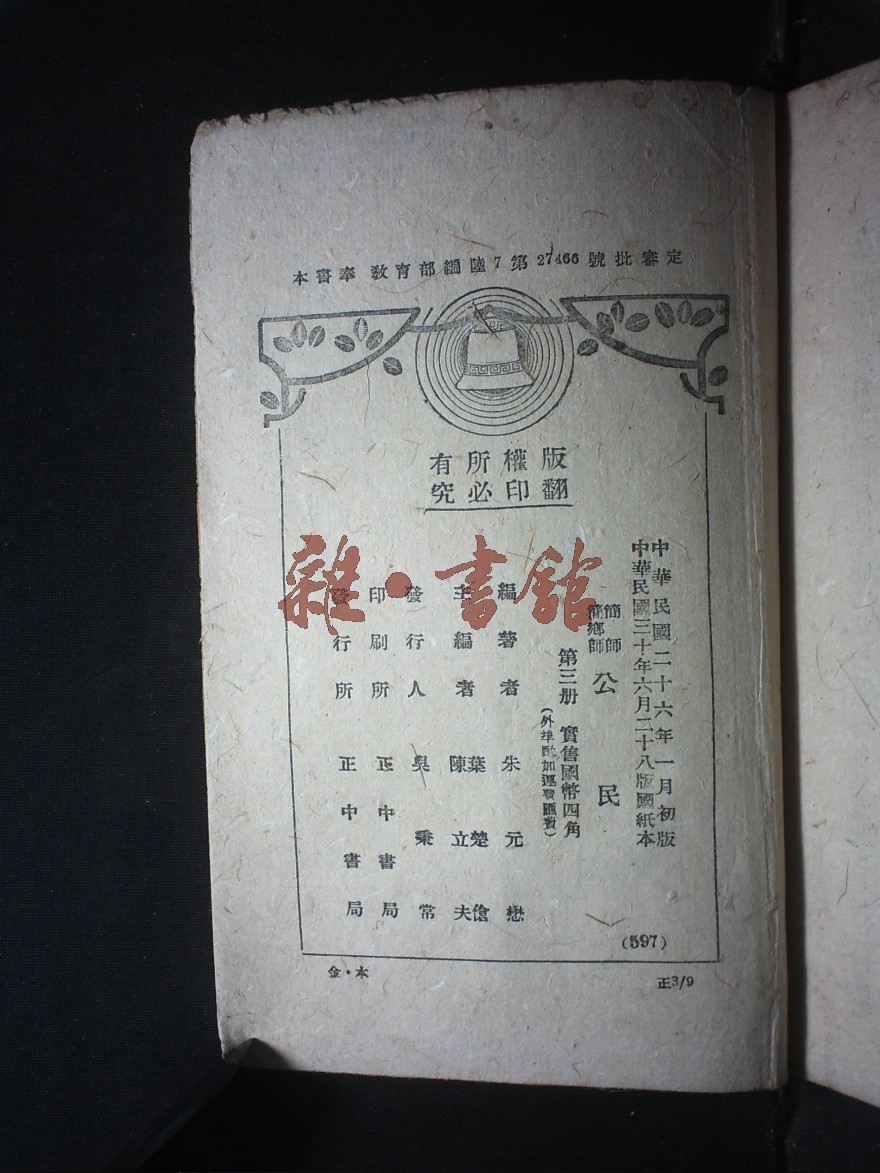 本書奉教育部編陸7第27466號批審定
版權所有
翻印必究
中華民國二十六年一月初版
中華民國三十年六月二十八版國紙本
簡師
簡鄉師
公民
第三册 實售國幣四角
(外埠酌加運費匯費)
編著者 朱元懋
主編者 葉楚傖 陳立夫
發行人 吳秉常
印刷所 正中書局
發行所 正中書局
(597)
金·本
正3/9
雜·書館